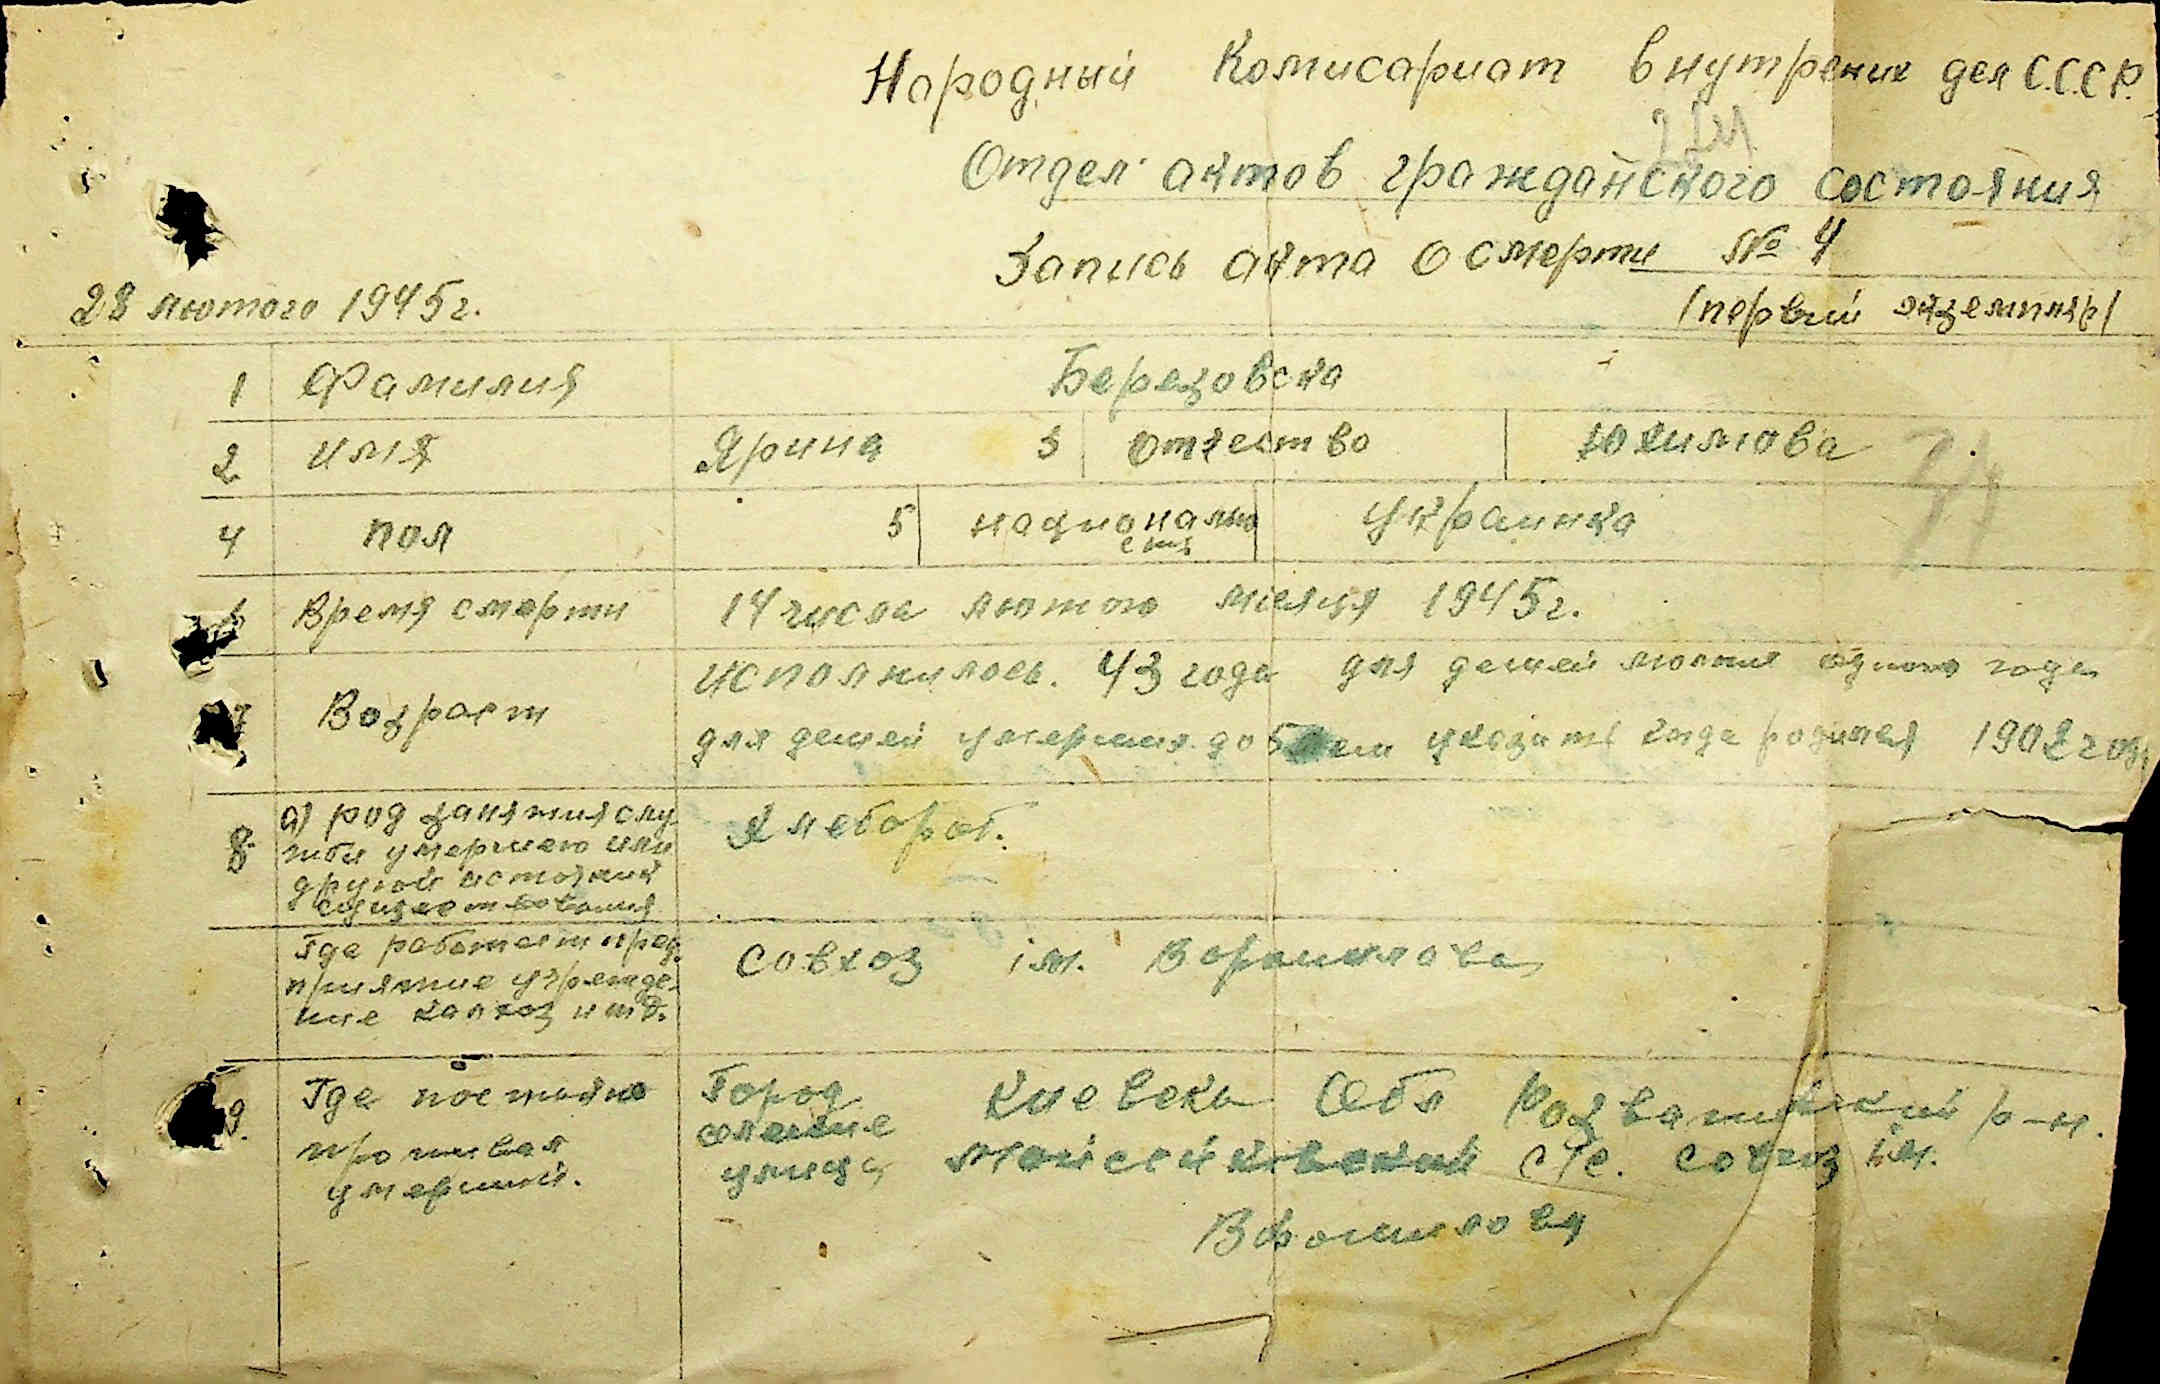 Народный Комисариат внутрених дел С.С.С.Р.
Отдел актов гражданского состояния
Запись акта о смерти № 4
28 лютого 1945 г.
(первый экземпляр)
1 Фамилия Березовска
2 имя Ярина 3 отчество Юхимова
4 пол 5 национально
сть украинка
6 Время смерти 14 числа лютого месяця 1945 г.
7 Возраст исполнилось 43 года для детей молше одного года
для детей умерших до 5 лет указать когда родился 1902 году
8 а) род занятия слу
жбы умершего или
другой источник
существования
хлебороб.
Где работает пред
приятие учрежде-
ние калхоз и т.д.
Совхоз ім. Ворошилова
9. Где постояно
проживал
умерший.
Город
селение
улица
Киевска Обл Розважевский р-н.
Мойсейковский с/с. совхоз ім.
Ворошилова